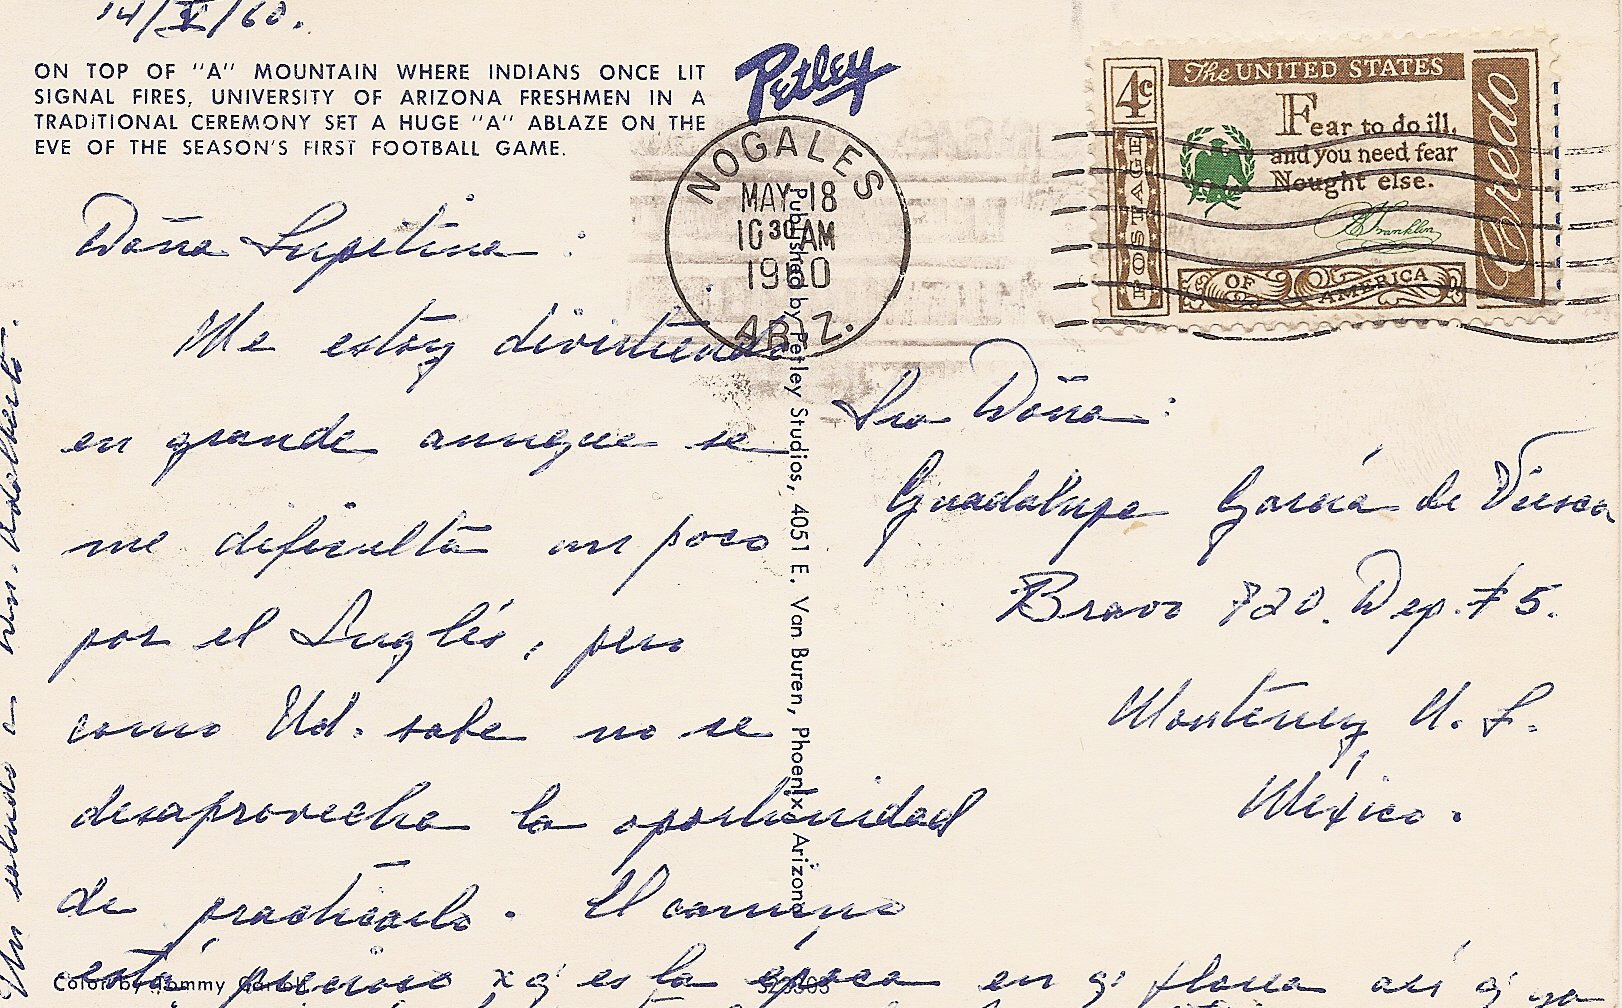 14/V/60.
ON TOP OF "A" MOUNTAIN WHERE INDIANS ONCE LIT
SIGNAL FIRES, UNIVERSITY OF ARIZONA FRESHMEN IN A
TRADITIONAL CEREMONY SET A HUGE "A" ABLAZE ON THE
EVE OF THE SEASON'S FIRST FOOTBALL GAME.
Petley
NOGALES
MAY 18
10 30 AM
1960
ARIZ.
4c
POSTAGE
The UNITED STATES
OF AMERICA
Credo
Fear to do ill,
and you need fear
Nought else.
B Franklin
Doña Lupitina :
Me estoy divirtiendo
en grande aunque se
me dificulta un poco
por el Inglés, pero
como Ud. sabe no se
desaprovecha la oportunidad
de practicarlo. El camino
está precioso x q' es la época en q' florea así q' ya
Un saludo a Adalberto.
Published by Petley Studios, 4051 E. Van Buren, Phoenix, Arizona
Sra Doña :
Guadalupe García de Viesca
Bravo 820. Dep. # 5.
Monterrey N. L.
México.
Color by Tommy